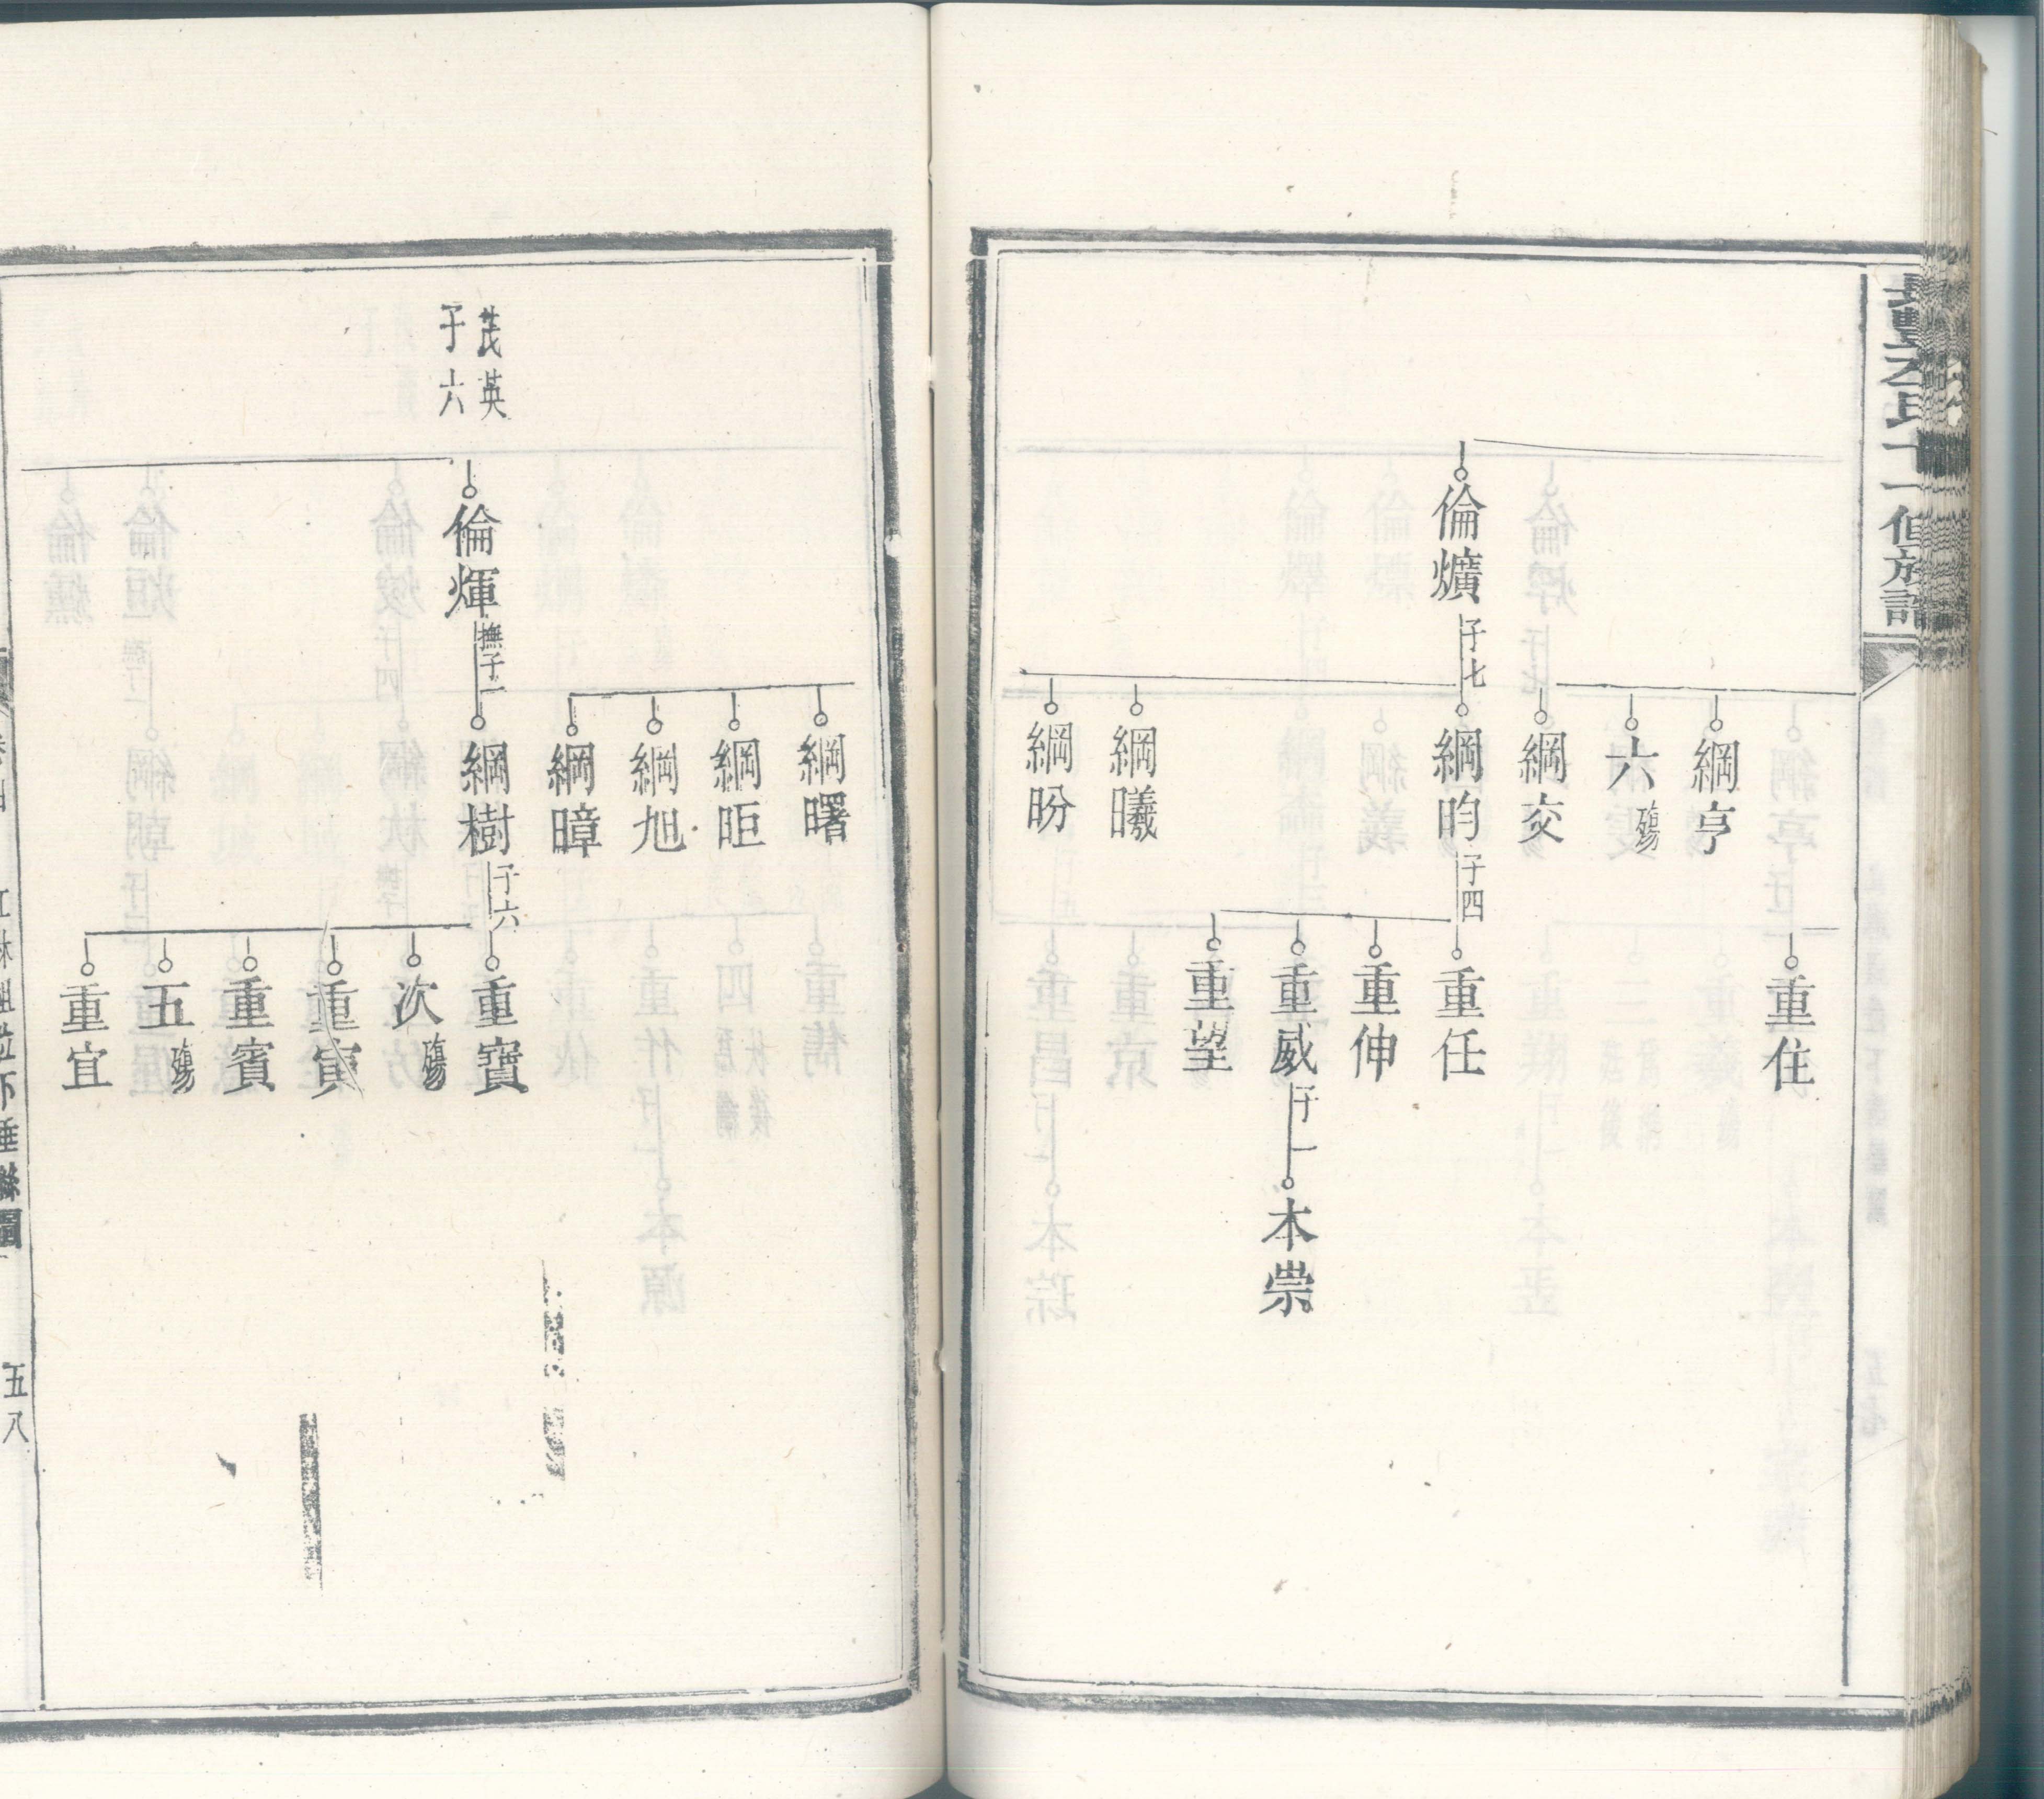 氏十一修族譜
綱亨
六殤
綱交
重住
倫爌
子七
綱昀
子四
重任
重伸
重威
子一
本崇
重望
綱曦
綱盼
綱曙
綱昛
綱旭
綱暲
茂英
子六
倫煇
撫子一
綱樹
子六
重寶
次殤
重寅
重賓
五殤
重宜
五八